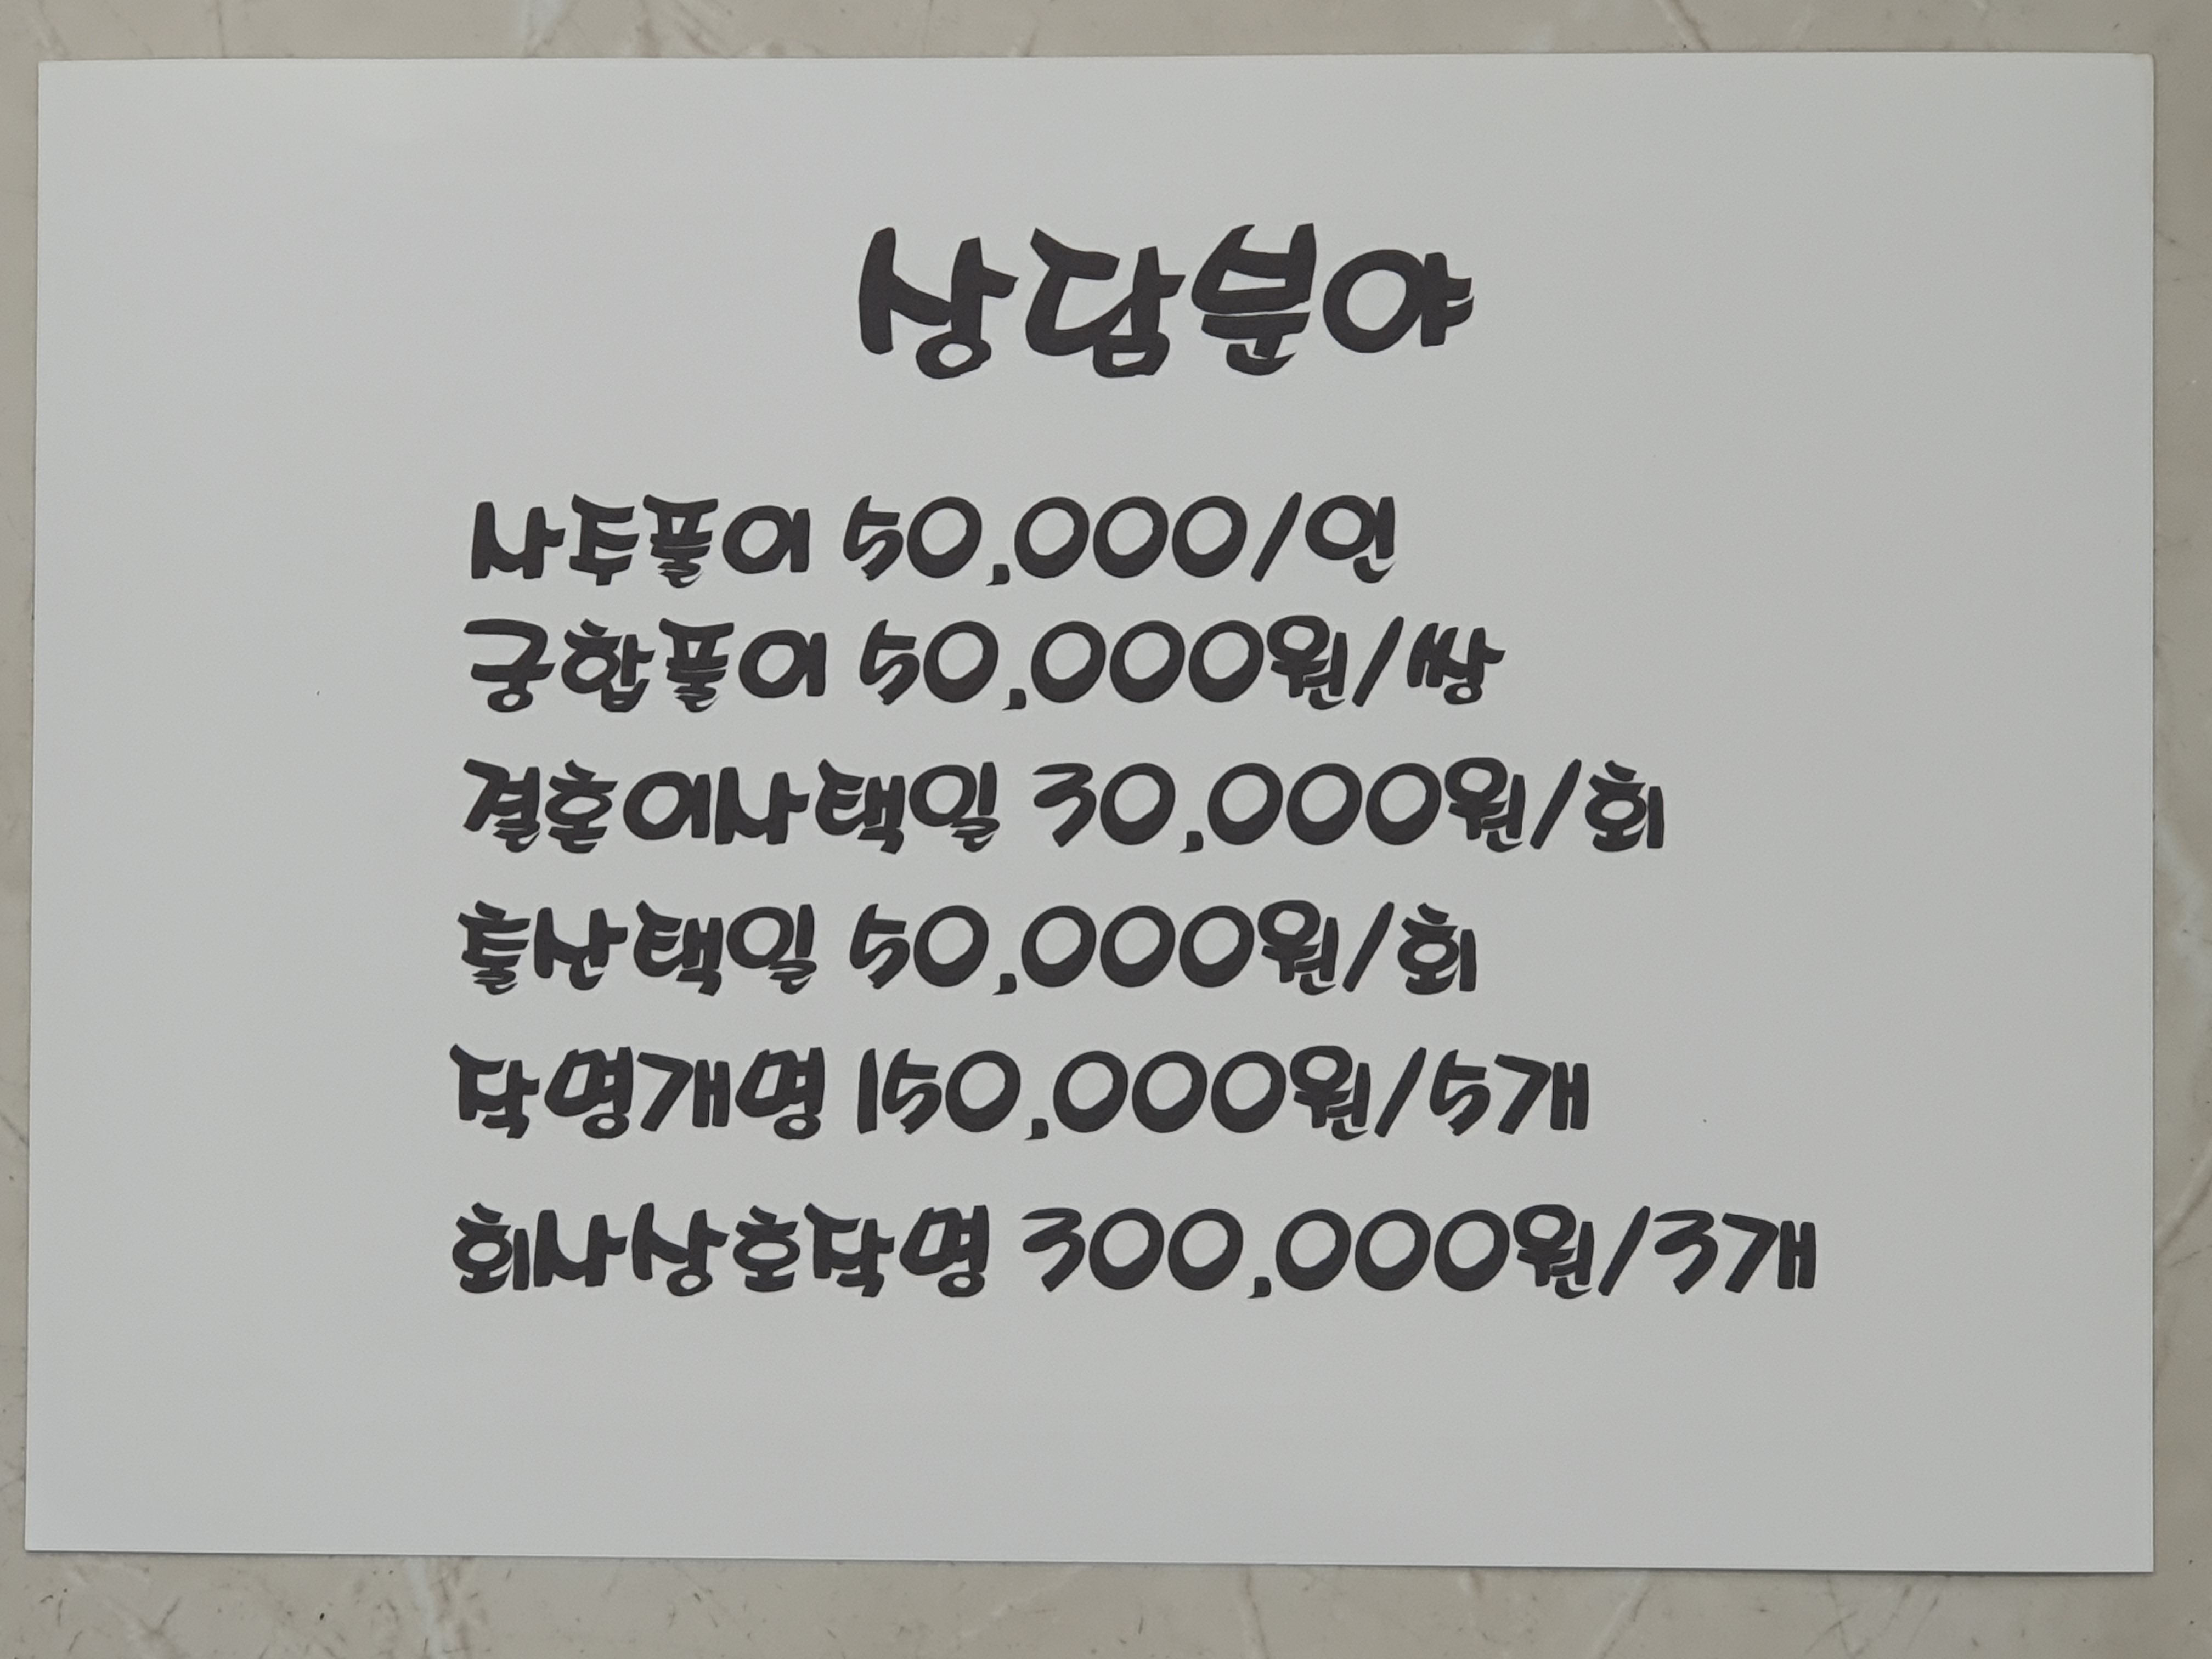 상담분야
사주풀이 50,000/인
궁합풀이 50,000원/쌍
결혼이사택일 30,000원/회
출산택일 50,000원/회
작명개명 150,000원/5개
회사상호작명 300,000원/3개